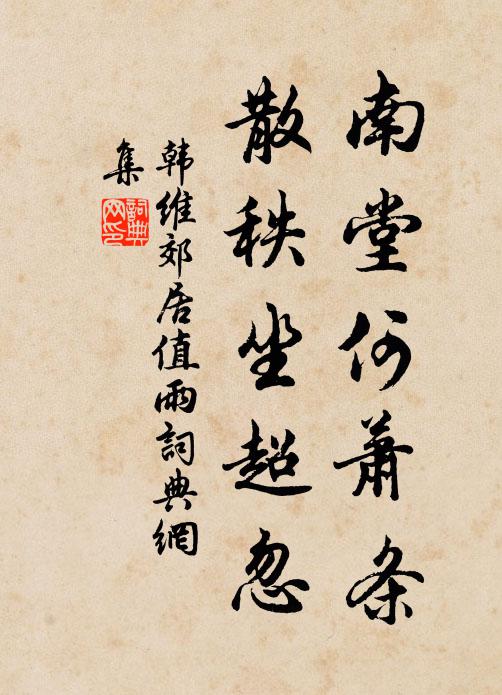 南堂何萧条
散秩坐超忽
韩维郊居值雨詞典網
集
詞典
网印